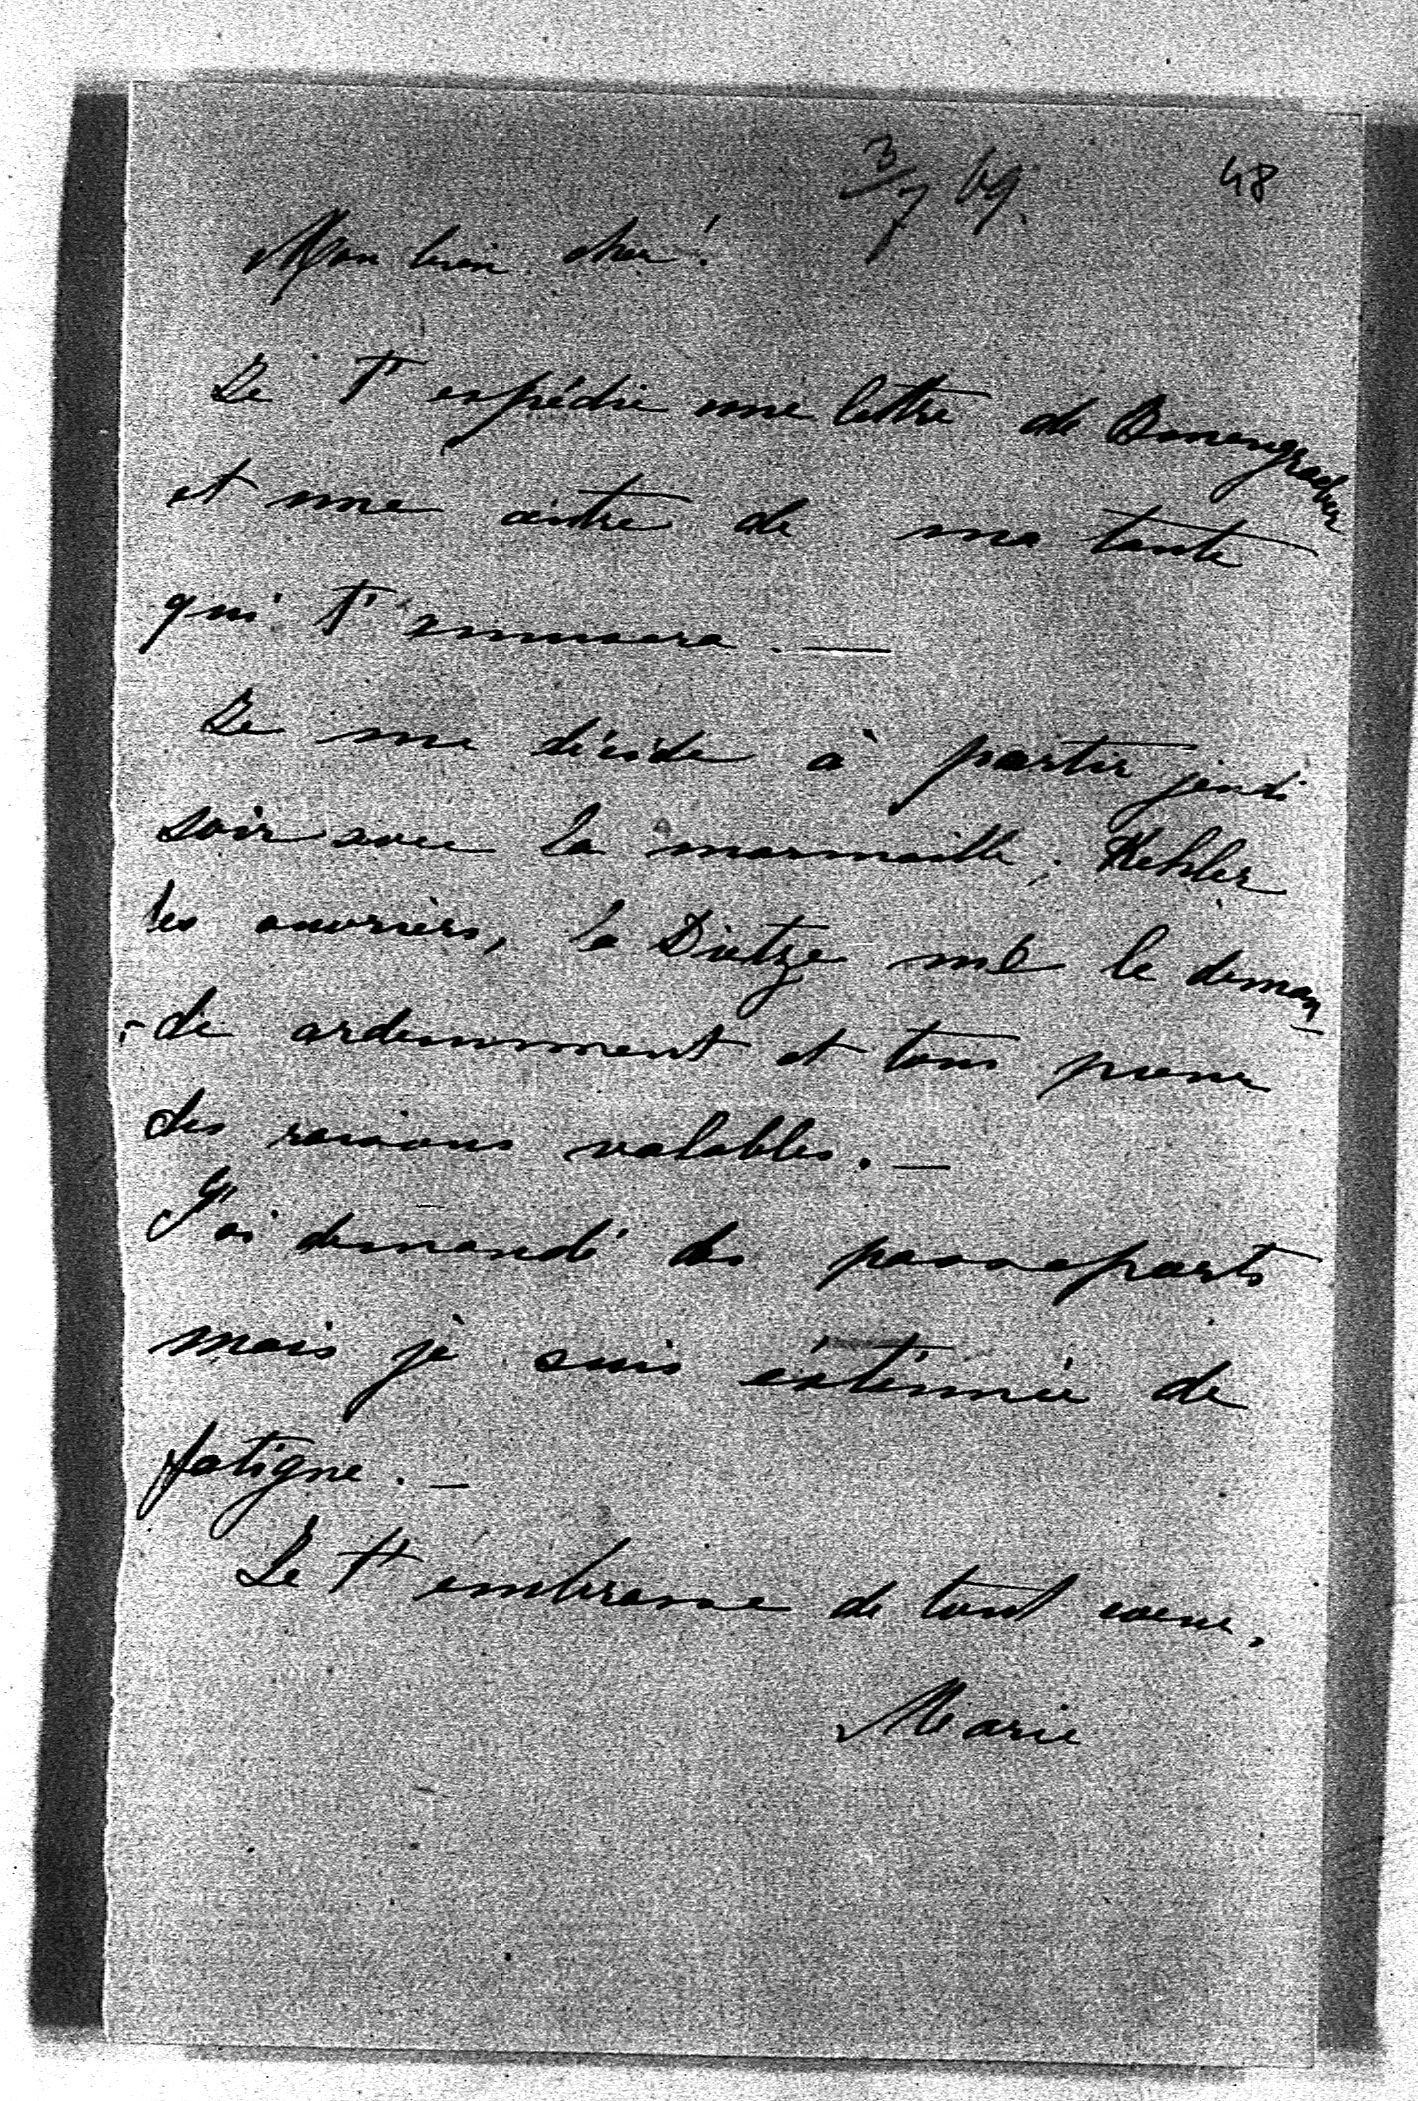 3/7 69.
48
Mon bien cher!
Je t'expédie une lettre de
et une autre de ma tante
qui t'amusera. —
Je me décide à partir jeudi
soir avec la marmaille, Kehler
les ouvriers, la Dietze me le deman
-de ardemment et tous pour
des raisons valables. —
J'ai demandé des passeports
mais je suis exténuée de
fatigue. —
Je t'embrasse de tout coeur.
Marie